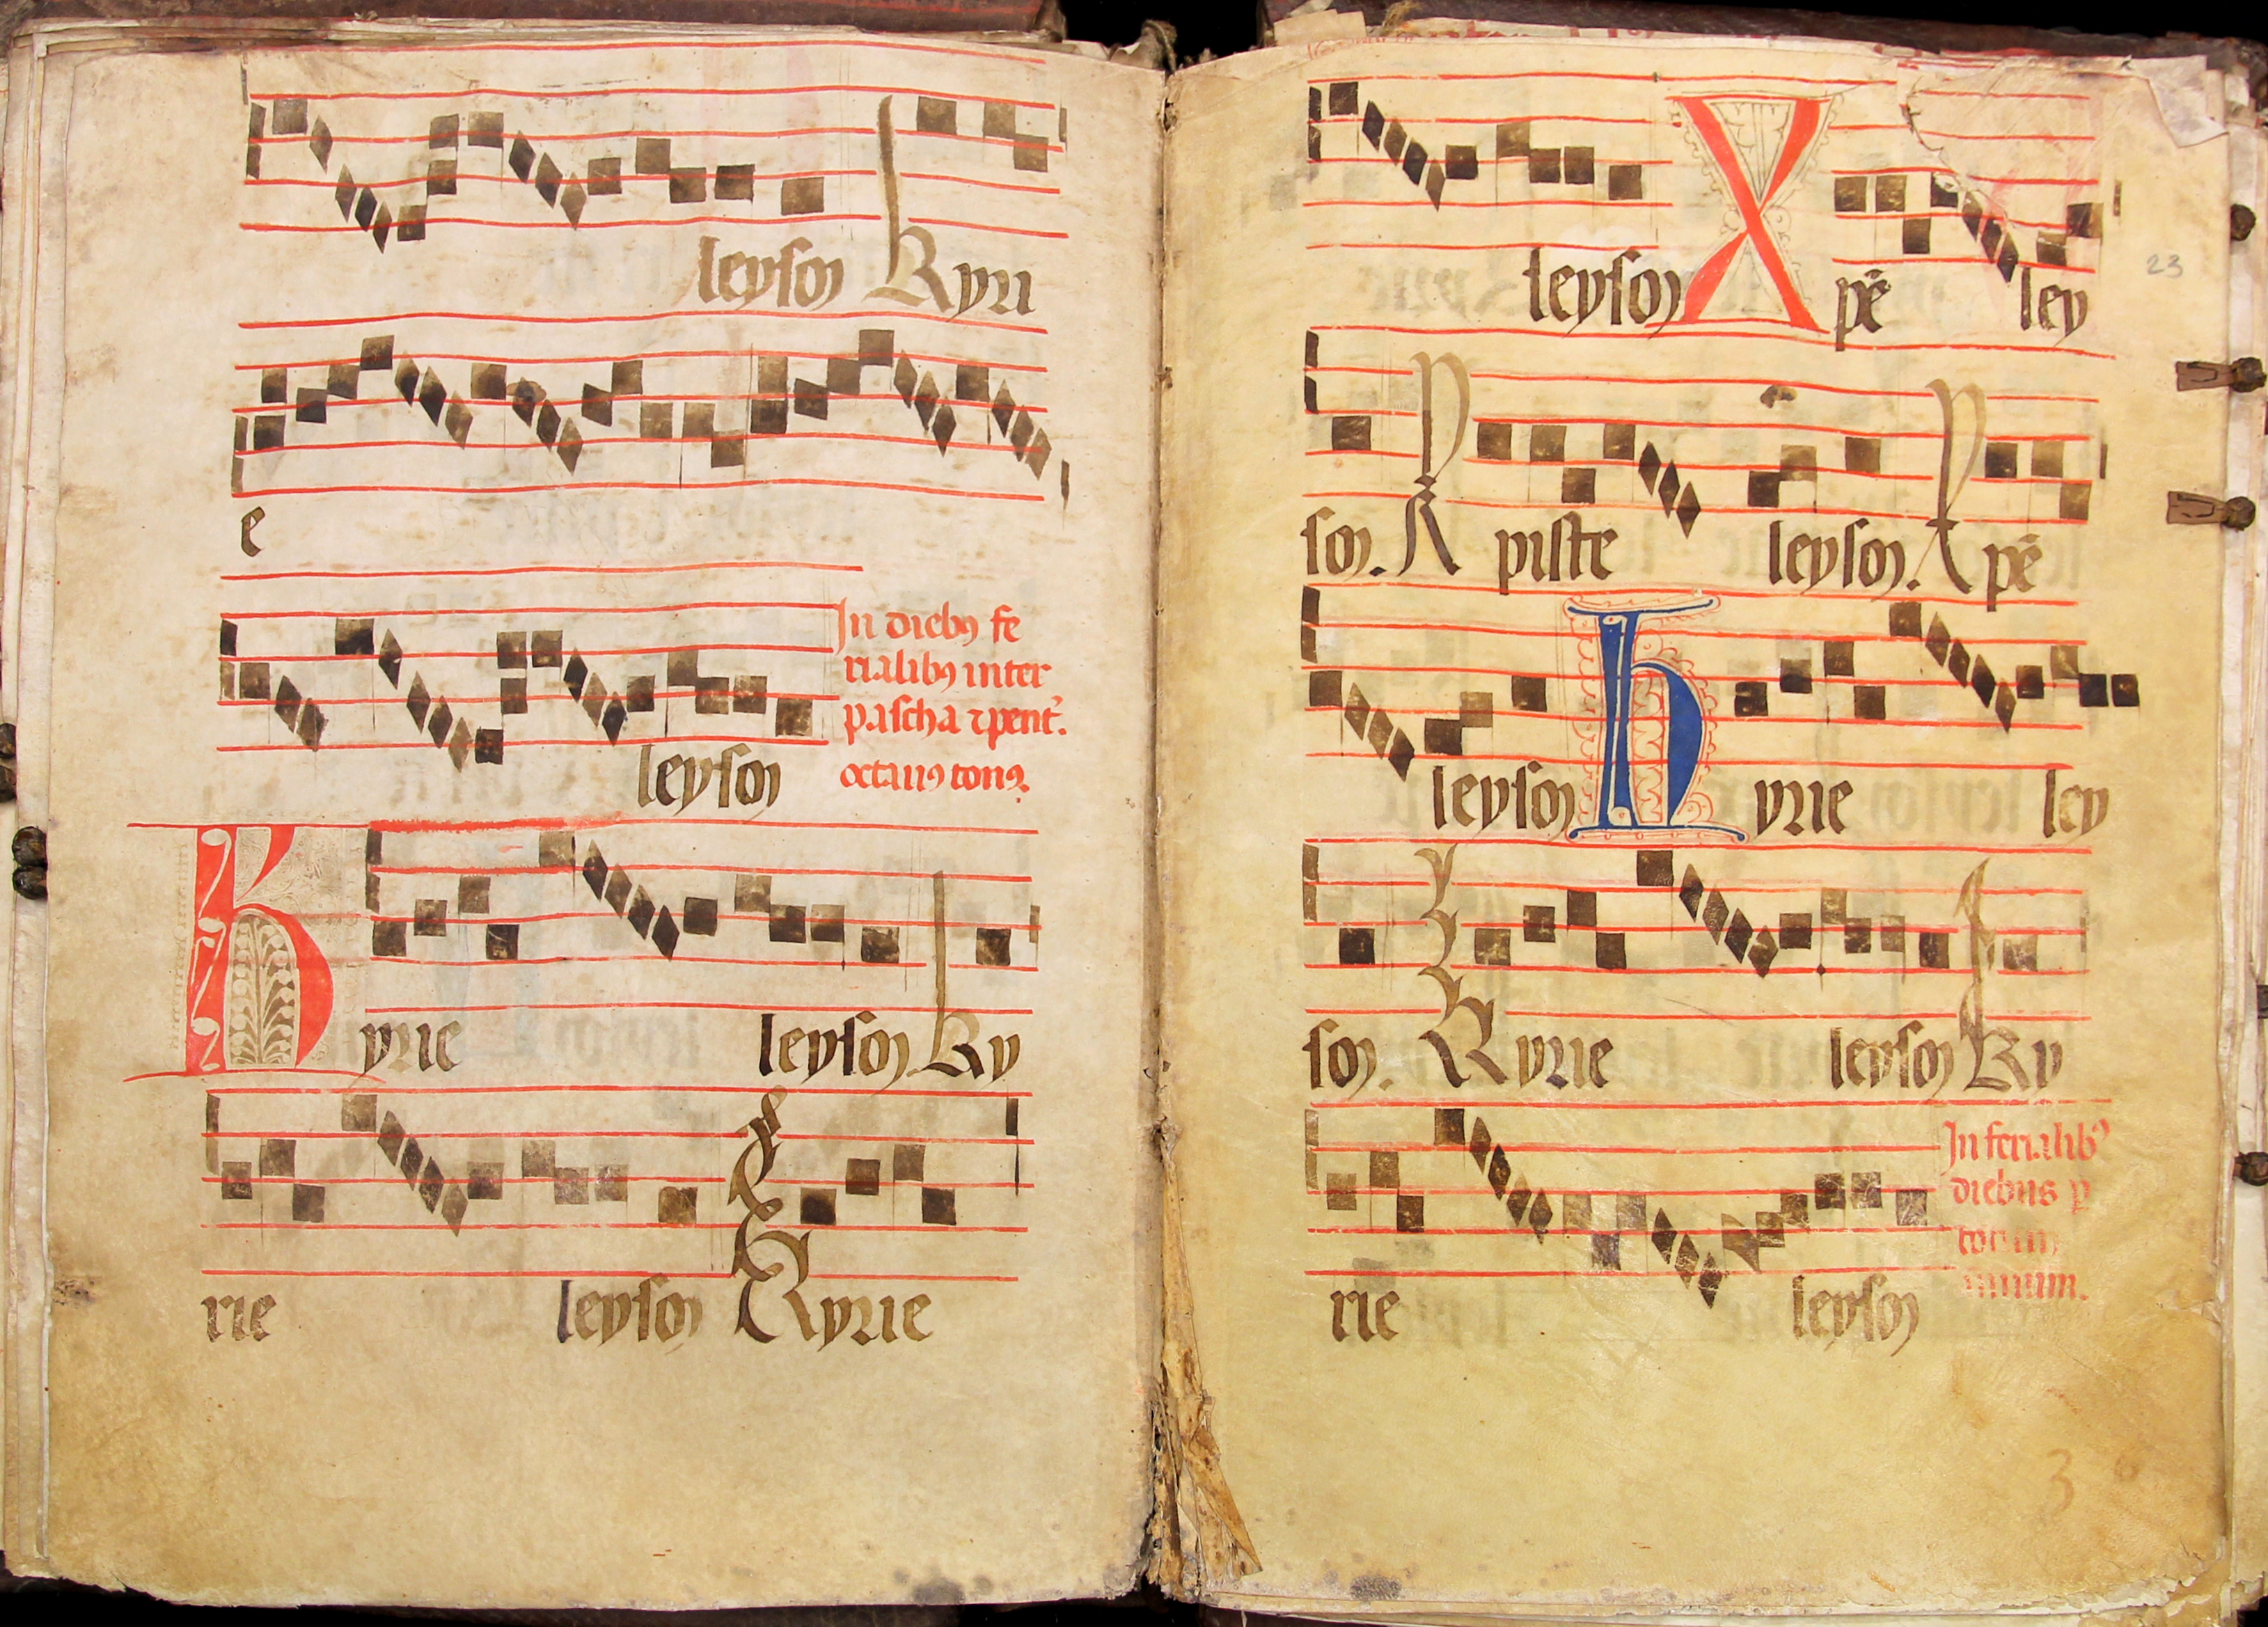 leyson Kyri
e
In diebꝰ fe
rialibꝰ inter
pascha ⁊ pent̉.
octauꝰ tonꝰ.
leyson
Kyrie leyson. Ky
rie leyson Kyrie
23
leyson Xpē ley
son. Xpiste leyson. Xpē
leyson kyrie ley
son. Kyrie leyson Ky
In ferialibꝰ
diebus p
rie leyson
3